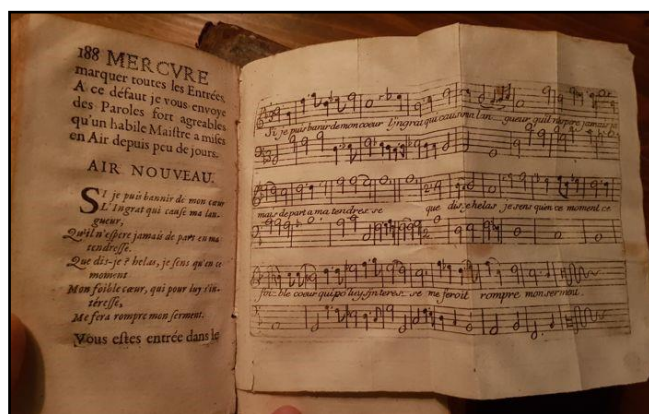 188 MERCVRE
marquer toutes les Entrées.
A ce défaut je vous envoye
des Paroles fort agreables
qu'un habile Maistre a mises
en Air depuis peu de jours.
AIR NOUVEAU.
SI je puis bannir de mon cœur
L'Ingrat qui cause ma lan-
gueur,
Qu'il n'espére jamais de part en ma
tendresse.
Que dis-je? helas, je sens qu'en ce
moment
Mon foible cœur, qui pour luy s'in-
téresse,
Me fera rompre mon serment.
Vous estes entrée dans le
Si je puis banir de mon coeur l'jngrat qui cause ma lan gueur quil n'espere jamais
mais de part a ma tendres se que dis je helas je sens qu'en ce moment
foible coeur qui po luy sjnteres se me feroit rompre mon serment.